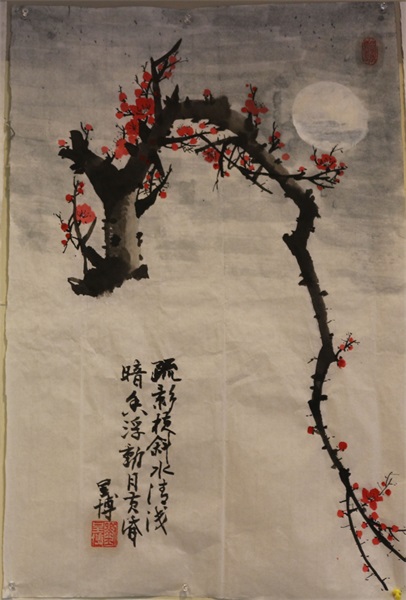 疏影横斜水清浅
暗香浮動月黄昏
博